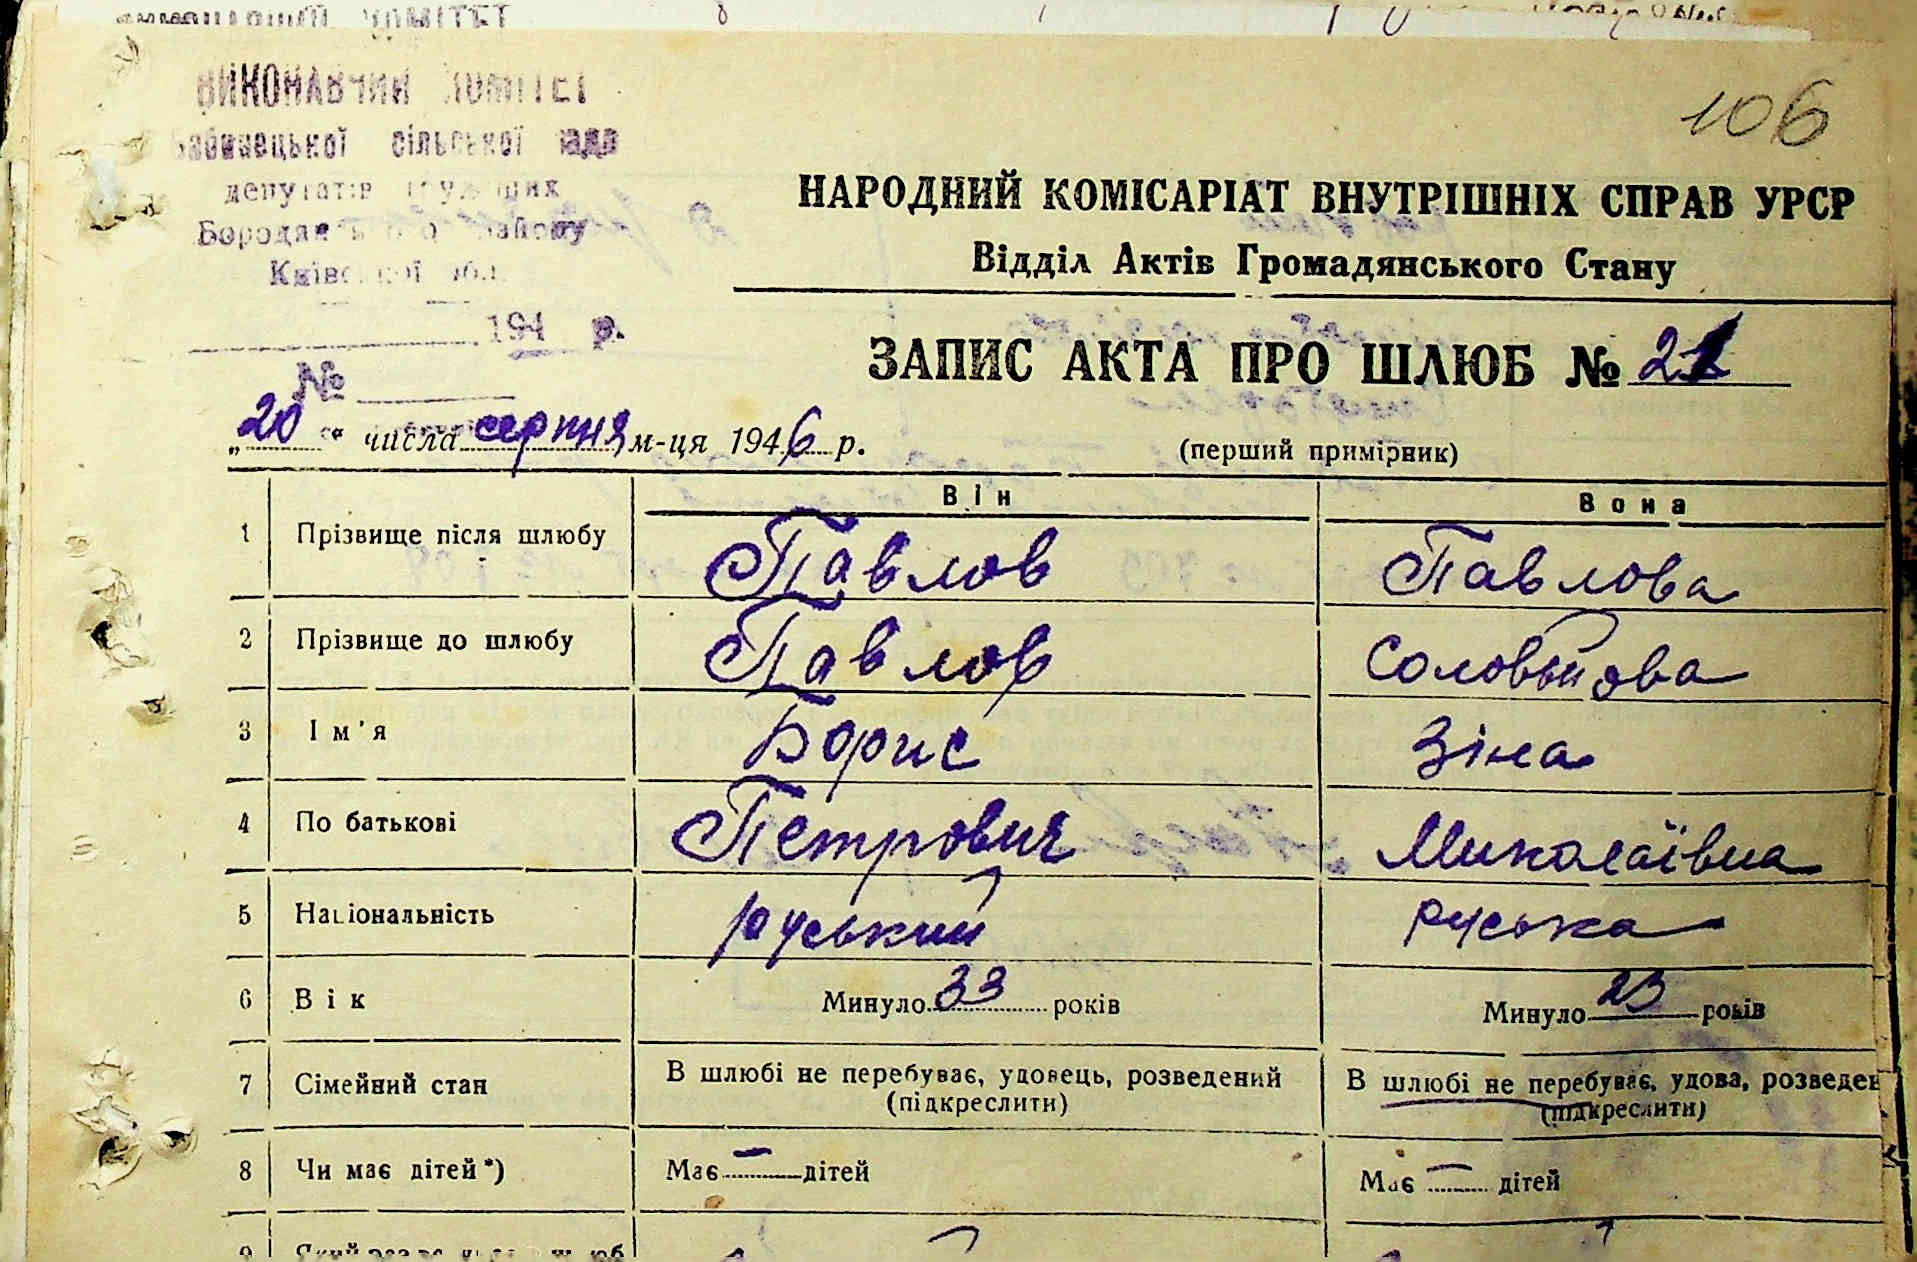 ВИКОНАВЧИЙ КОМІТЕТ
сільської
депутатів трудящих
Бородянського району
Київської обл.
194 р.
№
106
НАРОДНИЙ КОМІСАРІАТ ВНУТРІШНІХ СПРАВ УРСР
Відділ Актів Громадянського Стану
ЗАПИС АКТА ПРО ШЛЮБ № 21
„20" числа серпня м-ця 1946 р.
(перший примірник)
Він Вона
1 Прізвище після шлюбу Павлов Павлова
2 Прізвище до шлюбу Павлов Соловьйова
3 Ім'я Борис Зіна
4 По батькові Петрович Миколаївна
5 Національність руський руська
6 Вік Минуло 33 років Минуло 23 років
7 Сімейний стан В шлюбі не перебуває, удовець, розведений (підкреслити) В шлюбі не перебуває, удова, розведен (підкреслити)
8 Чи має дітей*) Має — дітей Має — дітей
9